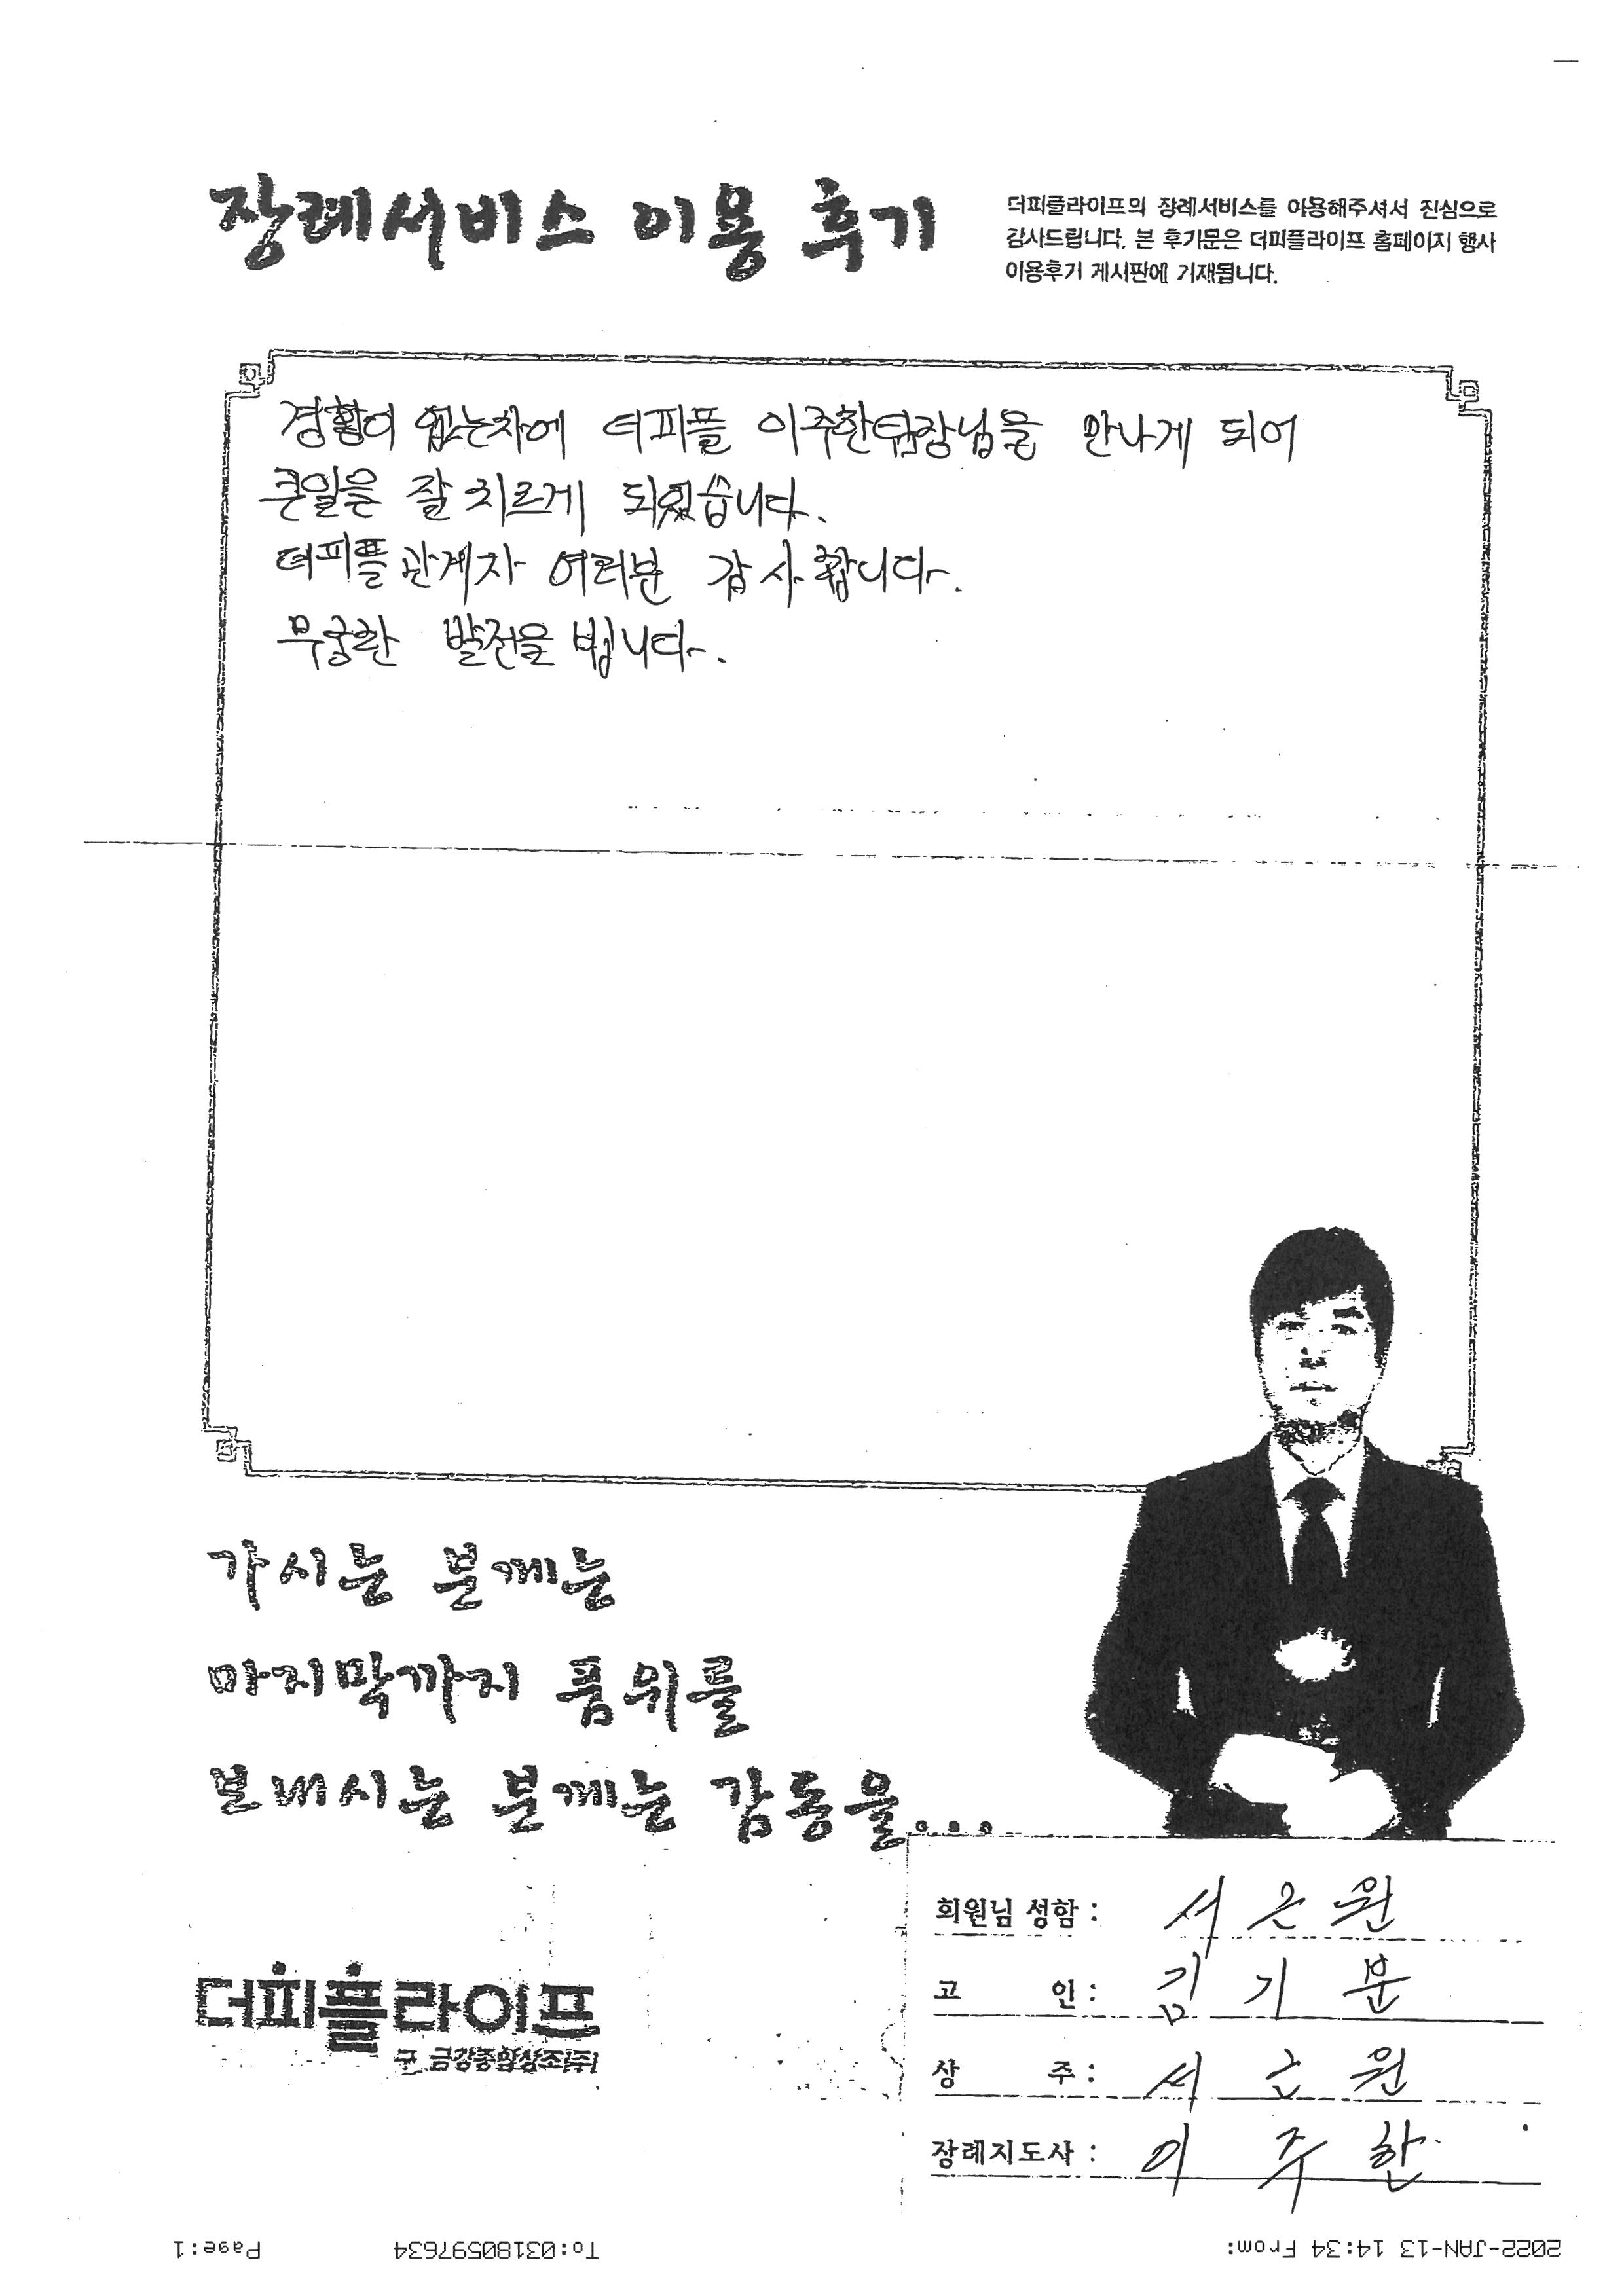 장례서비스 이용 후기
더피플라이프의 장례서비스를 이용해주셔서 진심으로
감사드립니다. 본 후기문은 더피플라이프 홈페이지 행사
이용후기 게시판에 기재됩니다.
경황이 없는차에 더피플 이주한팀장님을 만나게 되어
큰일을 잘 치르게 되었습니다.
더피플관계자 여러분 감사합니다.
무궁한 발전을 빕니다.
가시는 분께는
마지막까지 품위를
보내시는 분께는 감동을...
더피플라이프
구 금강종합상조(주)
회원님 성함 : 서근원
고 인 : 김기문
상 주 : 서근원
장례지도사 : 이주한
2022-JAN-13 14:34 From: To:03180597634 Page:1